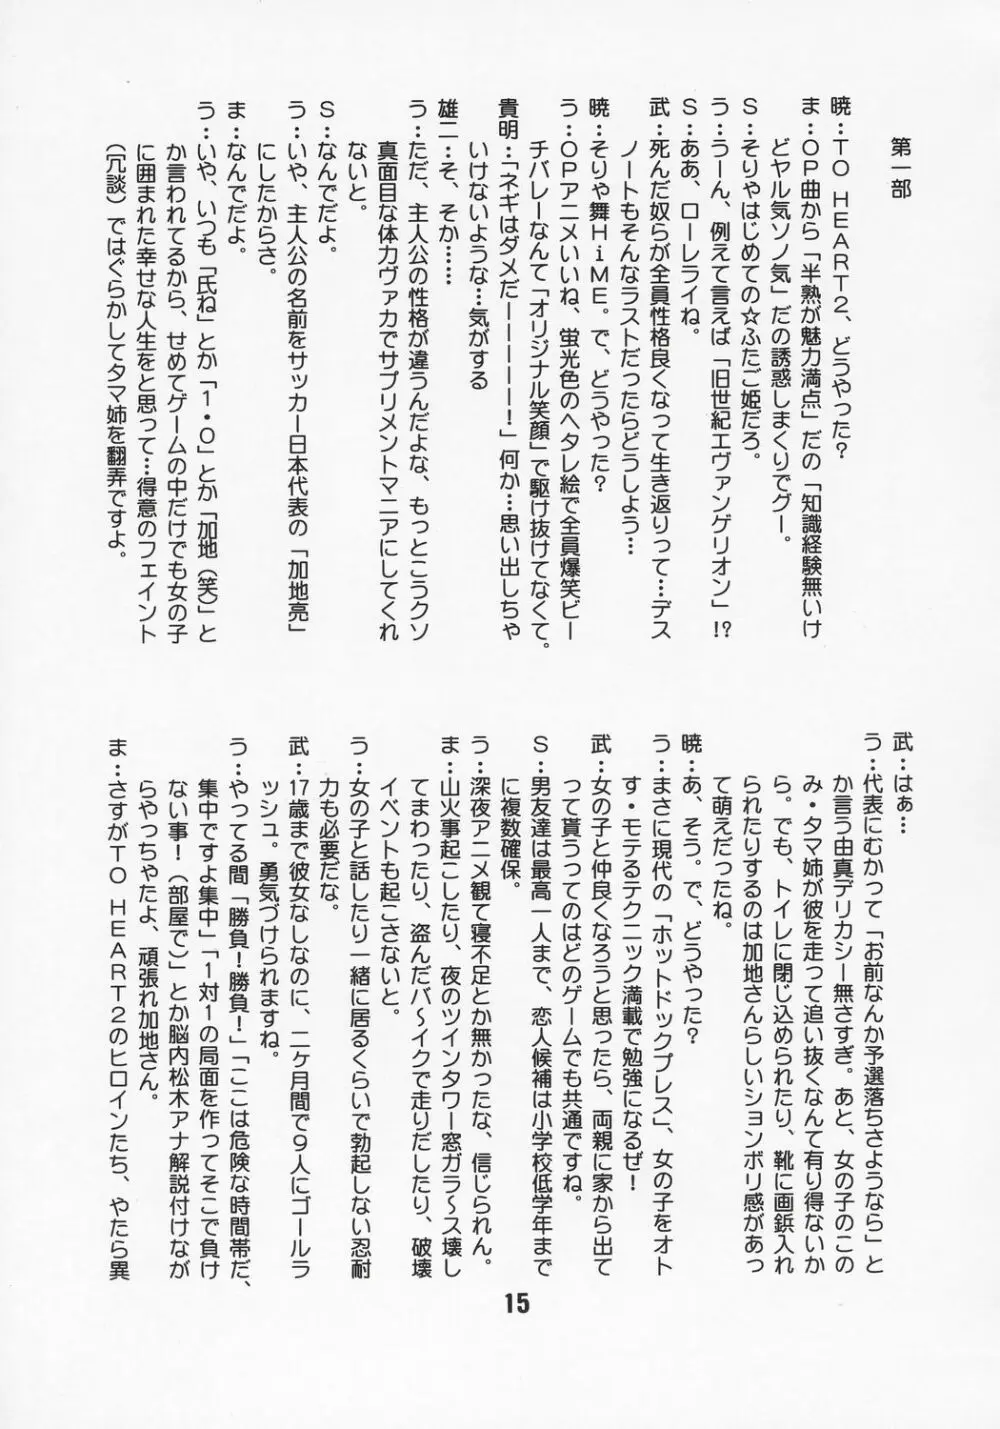 第一部
暁：TO HEART2、どうやった？
ま：OP曲から「半熟が魅力満点」だの「知識経験無いけ
どヤル気ソノ気」だの誘惑しまくりでグー。
S：そりゃはじめての☆ふたご姫だろ。
う：うーん、例えて言えば「旧世紀エヴァンゲリオン」!?
S：ああ、ローレライね。
武：死んだ奴らが全員性格良くなって生き返りって…デス
ノートもそんなラストだったらどうしよう…
暁：そりゃ舞HiME。で、どうやった？
う：OPアニメいいね、蛍光色のヘタレ絵で全員爆笑ビー
チバレーなんて「オリジナル笑顔」で駆け抜けてなくて。
貴明：「ネギはダメだーーーーー！」何か…思い出しちゃ
いけないような…気がする
雄二：そ、そか……
う：ただ、主人公の性格が違うんだよな、もっとこうクソ
真面目な体力ヴァカでサプリメントマニアにしてくれ
ないと。
S：なんでだよ。
う：いや、主人公の名前をサッカー日本代表の「加地亮」
にしたからさ。
ま：なんでだよ。
う：いや、いつも「氏ね」とか「1・0」とか「加地（笑）」と
か言われてるから、せめてゲームの中だけでも女の子
に囲まれた幸せな人生をと思って…得意のフェイント
（冗談）ではぐらかしてタマ姉を翻弄ですよ。
武：はぁ…
う：代表にむかって「お前なんか予選落ちさようなら」と
か言う由真デリカシー無さすぎ。あと、女の子のこの
み・タマ姉が彼を走って追い抜くなんて有り得ないか
ら。でも、トイレに閉じ込められたり、靴に画鋲入れ
られたりするのは加地さんらしいションボリ感があっ
て萌えだったね。
暁：あ、そう。で、どうやった？
う：まさに現代の「ホットドックプレス」、女の子をオト
す・モテるテクニック満載で勉強になるぜ！
武：女の子と仲良くなろうと思ったら、両親に家から出て
って貰うってのはどのゲームでも共通ですね。
S：男友達は最高一人まで、恋人候補は小学校低学年まで
に複数確保。
う：深夜アニメ観て寝不足とか無かったな、信じられん。
ま：山火事起こしたり、夜のツインタワー窓ガラ〜ス壊し
てまわったり、盗んだバ〜イクで走りだしたり、破壊
イベントも起こさないと。
う：女の子と話したり一緒に居るくらいで勃起しない忍耐
力も必要だな。
武：17歳まで彼女なしなのに、二ヶ月間で9人にゴールラ
ッシュ。勇気づけられますね。
う：やってる間「勝負！勝負！」「ここは危険な時間帯だ、
集中ですよ集中」「1対1の局面を作ってそこで負け
ない事！（部屋で）」とか脳内松木アナ解説付けなが
らやっちゃたよ、頑張れ加地さん。
ま：さすがTO HEART2のヒロインたち、やたら異
15